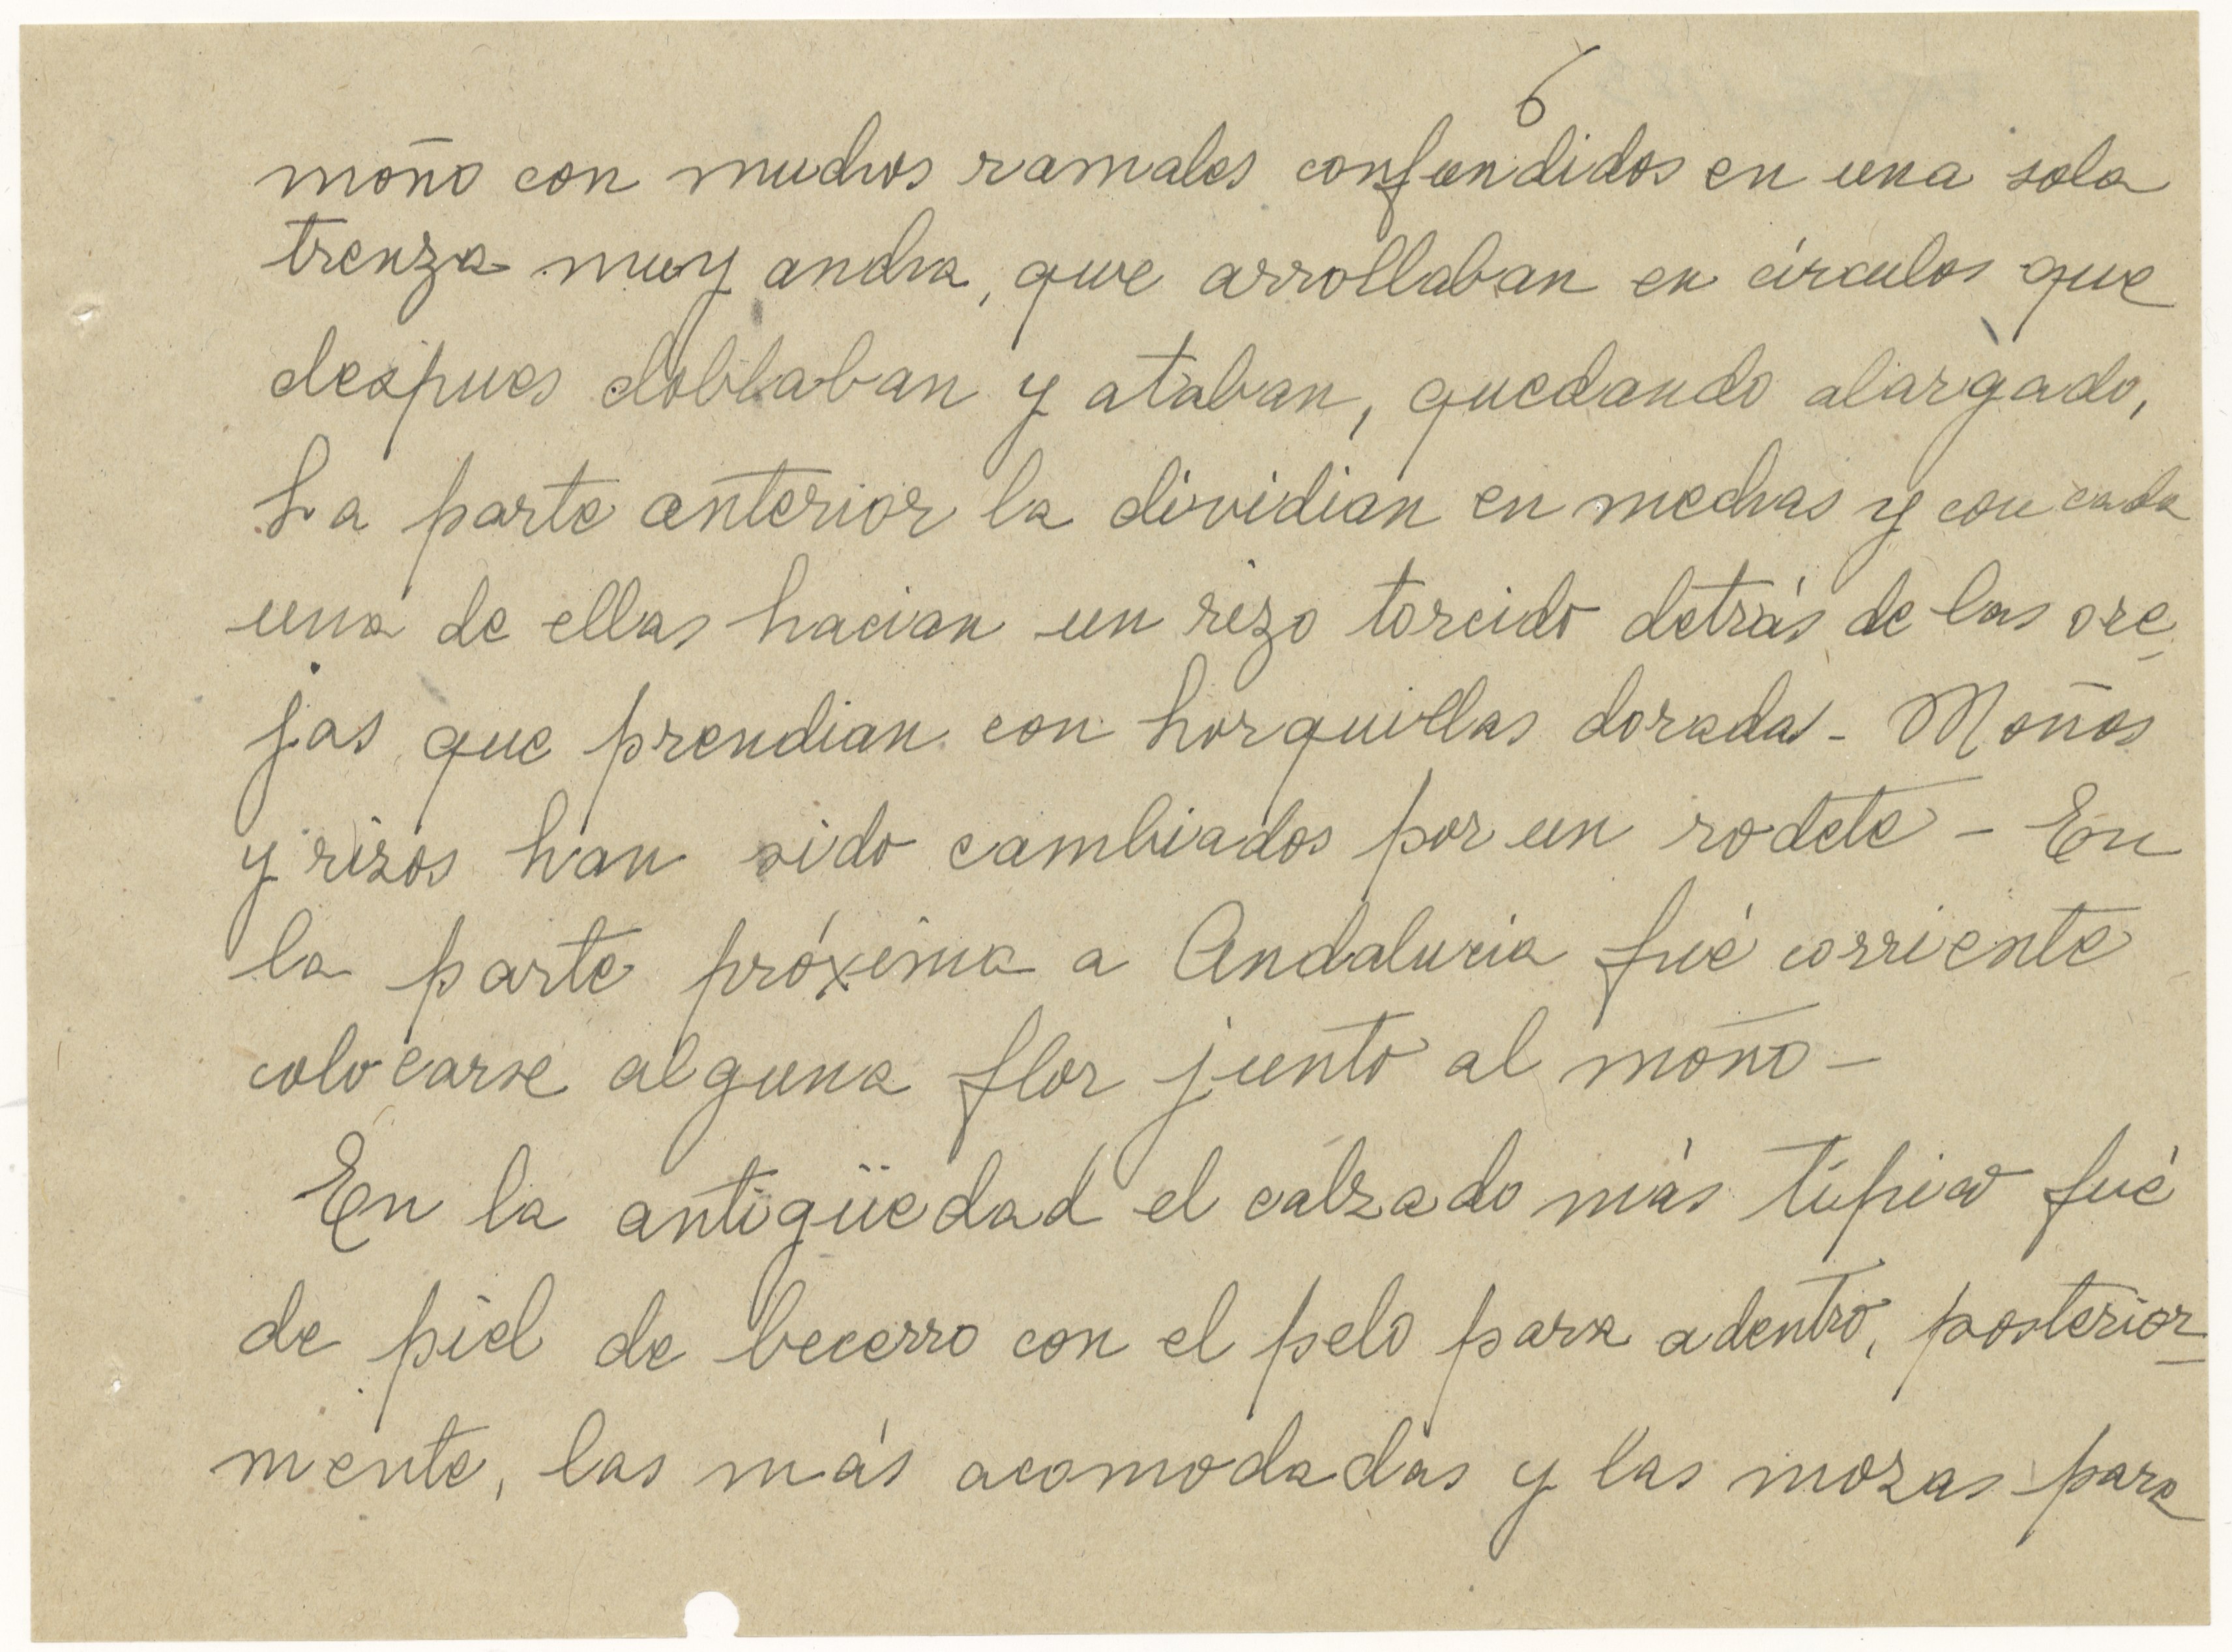 6
moño con muchos ramales confundidos en una sola
trenza muy ancha, que arrollaban en circulos que
despues doblaban y ataban, quedando alargado,
La parte anterior la dividian en mechas y con cada
una de ellas hacian un rizo torcido detrás de las ore-
jas que prendian con horquillas doradas - Moños
y rizos han sido cambiados por un rodete - En
la parte próxima a Andalucia fué corriente
colocarse alguna flor junto al moño -
En la antigüedad el calzado más típico fué
de piel de becerro con el pelo para adentro, posterior-
mente, las más acomodadas y las mozas para